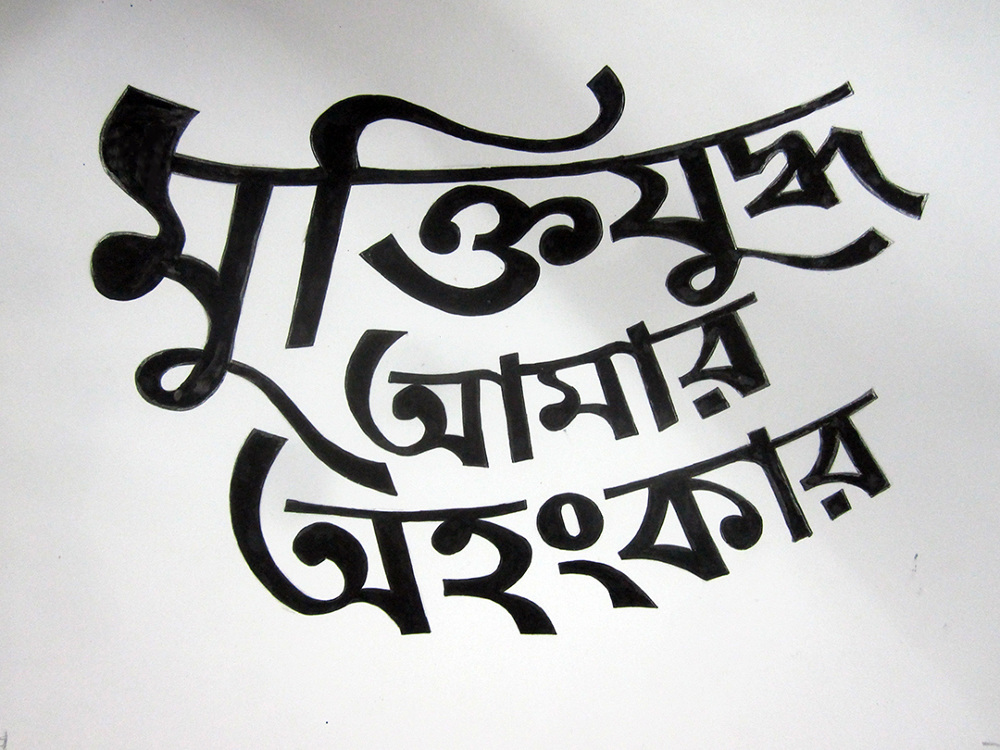 মুক্তিযুদ্ধ
আমার
অহংকার